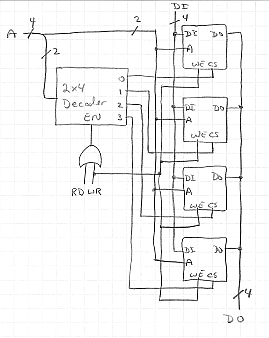 DI
A 4 2 4
2
DI DO
A
WE CS
2x4 0
Decoder 1
2
EN 3
DI DO
A
WE CS
RD WR
DI DO
A
WE CS
DI DO
A
WE CS
4
DO